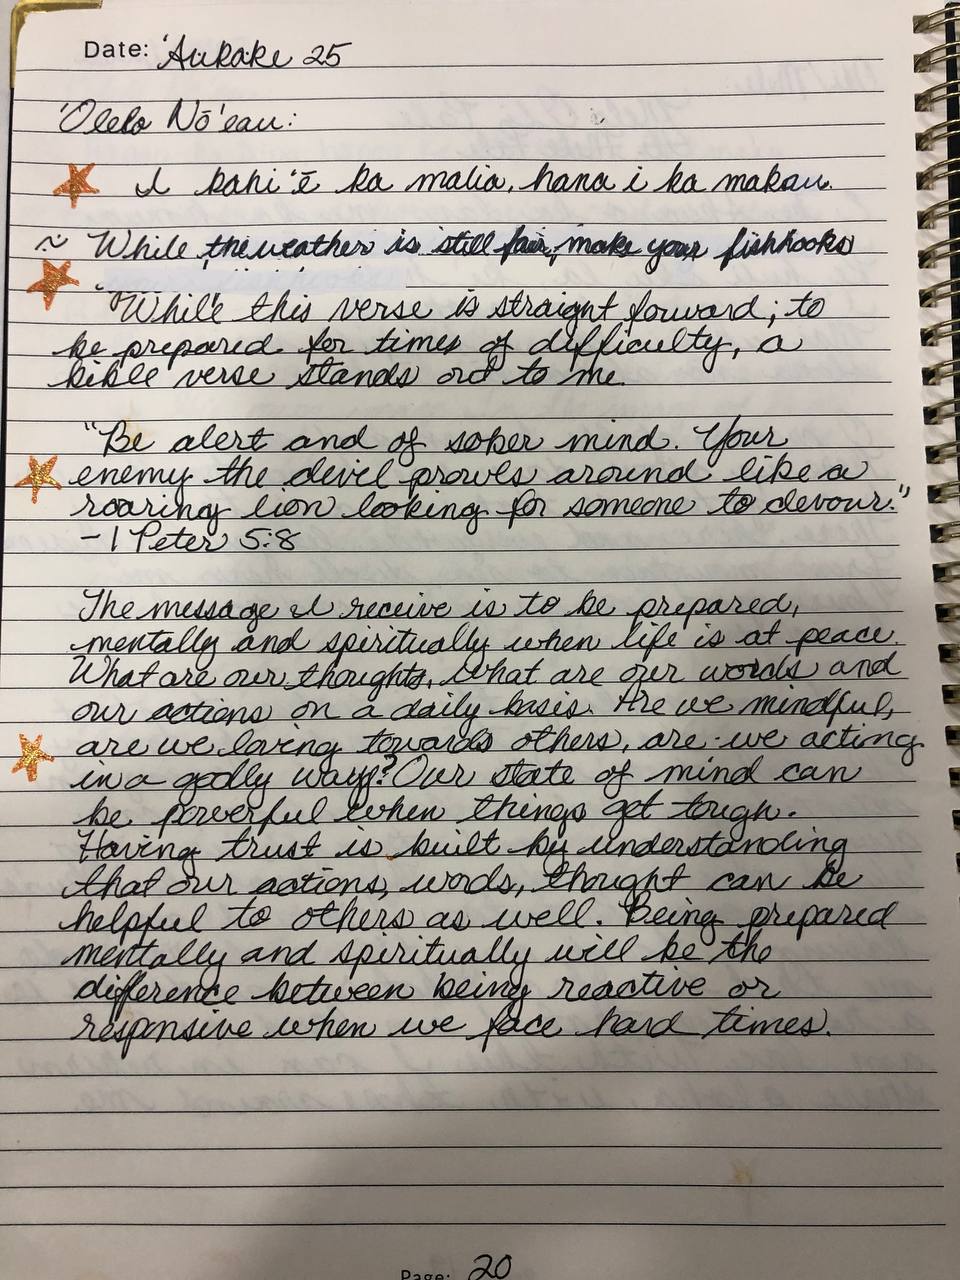 Date: 'Aukake 25
'Olelo Nō'eau:
I kahi 'ē ka malia, hana i ka makau.
~ While the weather is still fair, make your fishhooks
While this verse is straight forward; to
be prepared for times of difficulty, a
bible verse stands out to me.
"Be alert and of sober mind. Your
enemy the devil prowls around like a
roaring lion looking for someone to devour."
- 1 Peter 5:8
The message I receive is to be prepared,
mentally and spiritually when life is at peace.
What are our thoughts, what are our words and
our actions on a daily basis. Are we mindful,
are we loving towards others, are we acting
in a godly way? Our state of mind can
be powerful when things get tough.
Having trust is built by understanding
that our actions, words, thought can be
helpful to others as well. Being prepared
mentally and spiritually will be the
difference between being reactive or
responsive when we face hard times.
Page: 20